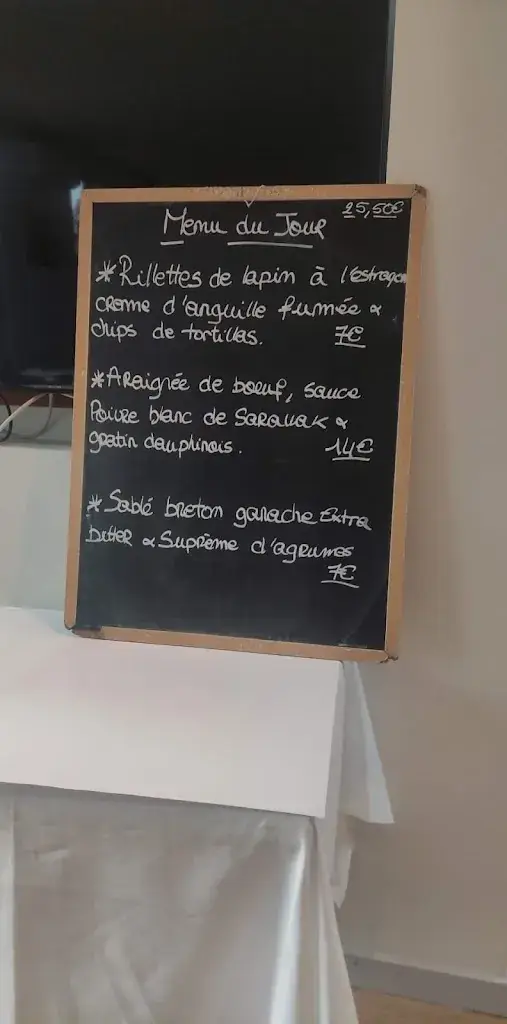 Menu du Jour 25,50€
*Rillettes de lapin à l'estragon
creme d'anguille fumée &
chips de tortillas. 7€
*Araignée de boeuf, sauce
Poivre blanc de Sarawak &
gratin dauphinois. 14€
*Sablé breton ganache Extra
bitter & Suprême d'agrumes
7€